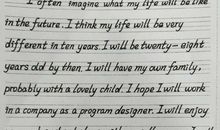 I often imagine what my life will be like
in the future. I think my life will be very
different in ten years. I will be twenty-eight
years old by then. I will have my own family,
probably with a lovely child. I hope I will work
in a company as a program designer. I will enjoy